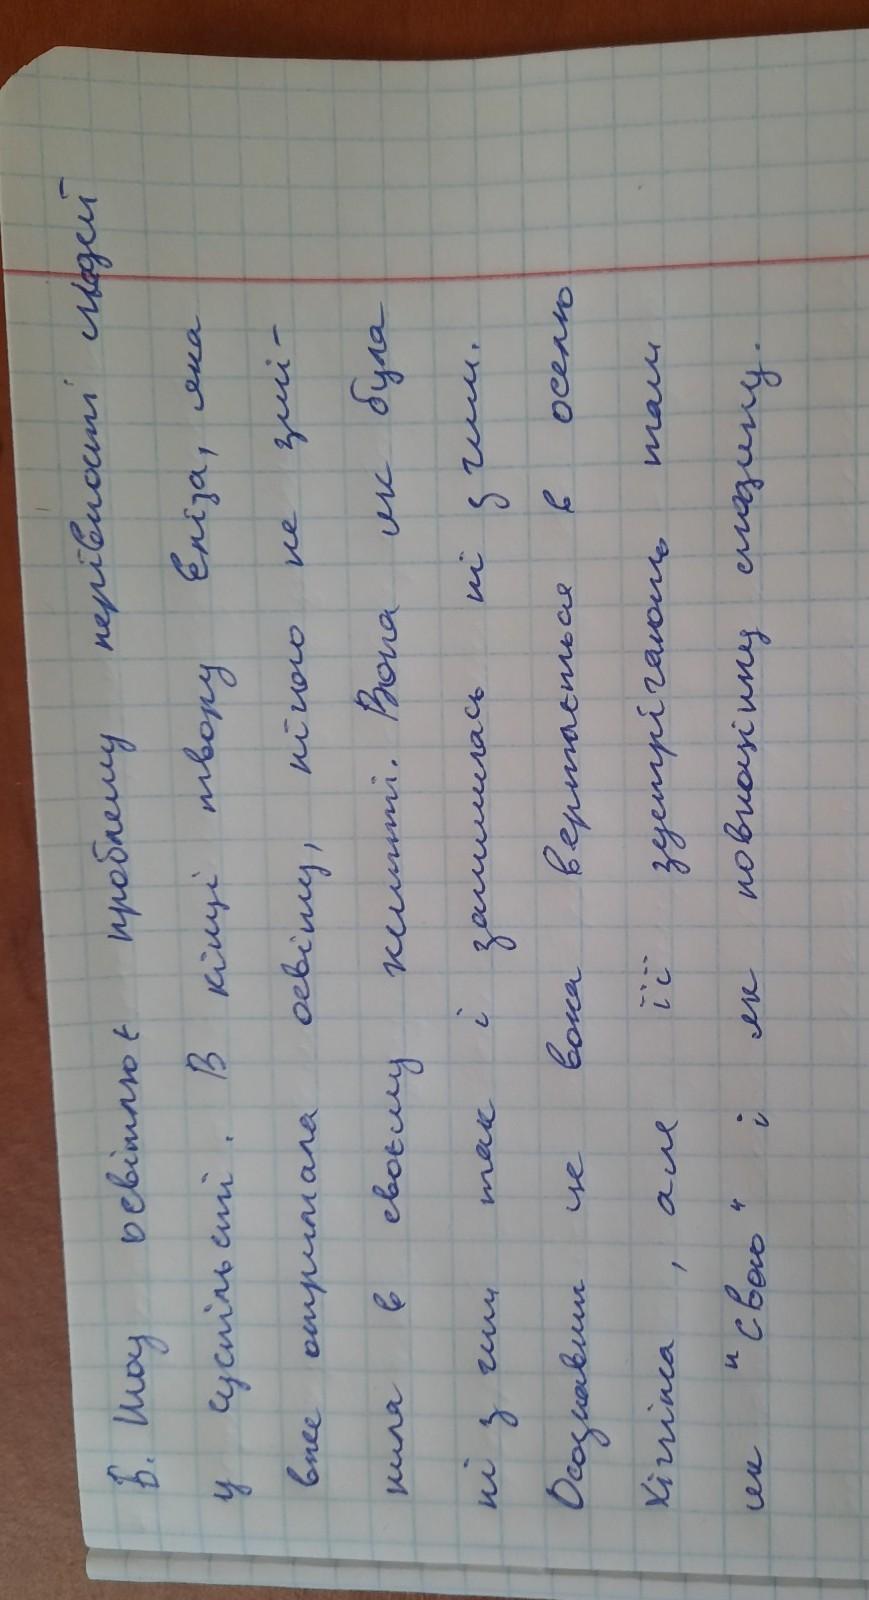 Б. Шоу освітлює проблему нерівності людей
у суспільстві. В кінці твору Еліза, яка
вже отримала освіту, нічого не змі-
нила в своєму житті. Вона як була
ні з чим так і залишилась ні з чим.
Осознавши це вона вертається в оселю
Хіггінса, але її зустрічають там
як "свою" і як повноцінну людину.